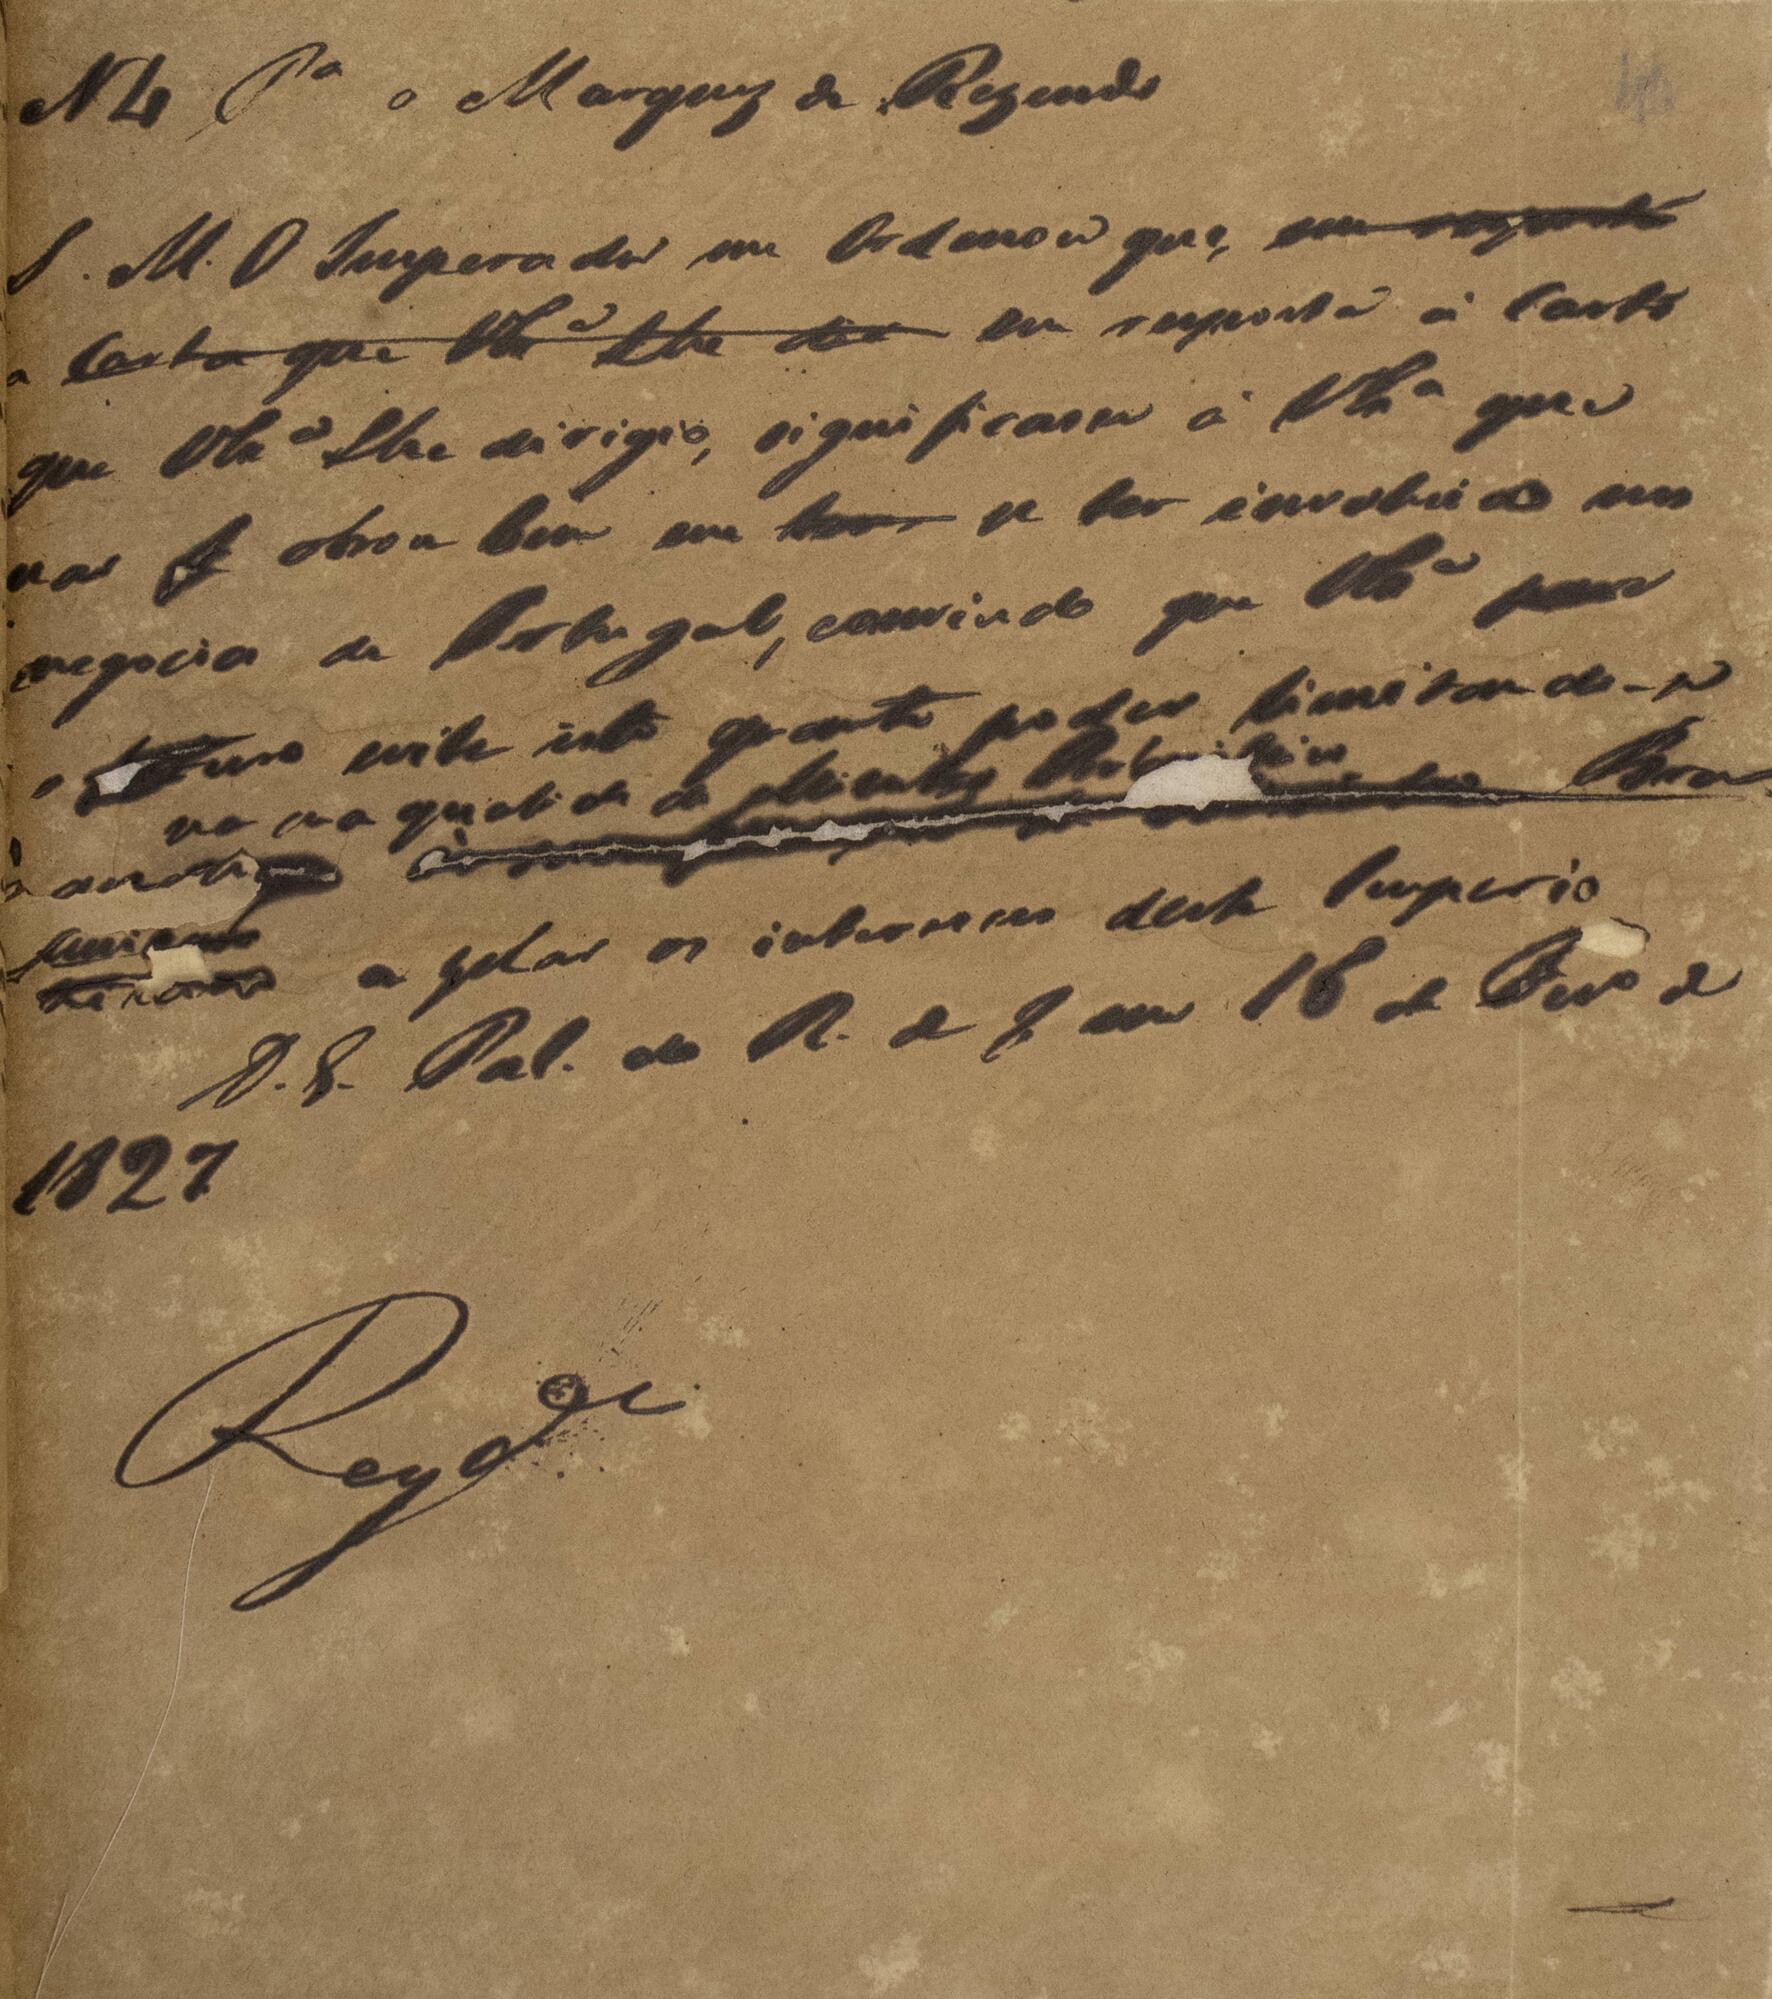 N 4 Pª o Marquez de Rezende
S. M. O Imperador me Ordenou que, em resposta
a Carta que VExª Lhe em resposta á Carta
que VExª Lhe dirigio, significasse á VExª que
não obrou bem em se ter involvido nos
negocios de Portugal, convindo que VExª para
o futuro evite isto quanto poder limitando-se
na qualidade de Ministro Bra
a zelar os interesses deste Imperio
D. G. Pal. do R. de J. em 16 de Fevº de
1827